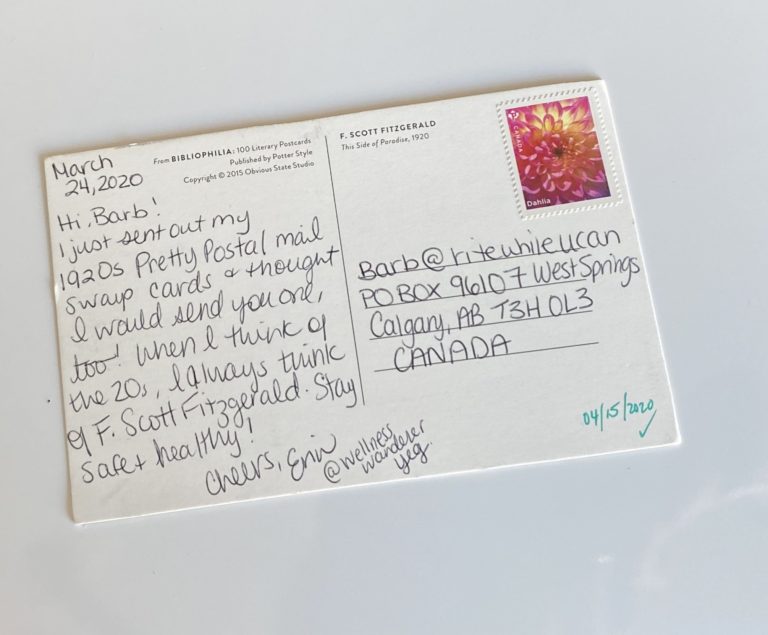 March
24, 2020
From BIBLIOPHILIA: 100 Literary Postcards
Published by Potter Style
Copyright © 2015 Obvious State Studio
Hi, Barb!
I just sent out my
1920s Pretty Postal mail
swap cards & thought
I would send you one,
too! When I think of
the 20s, I always think
of F. Scott Fitzgerald. Stay
safe + healthy!
Cheers, Erin
@wellness
wanderer
yeg.
F. SCOTT FITZGERALD
This Side of Paradise, 1920
P
CANADA
Dahlia
Barb@ritewhileucan
PO BOX 96107 West Springs
Calgary, AB T3H 0L3
CANADA
04/15/2020